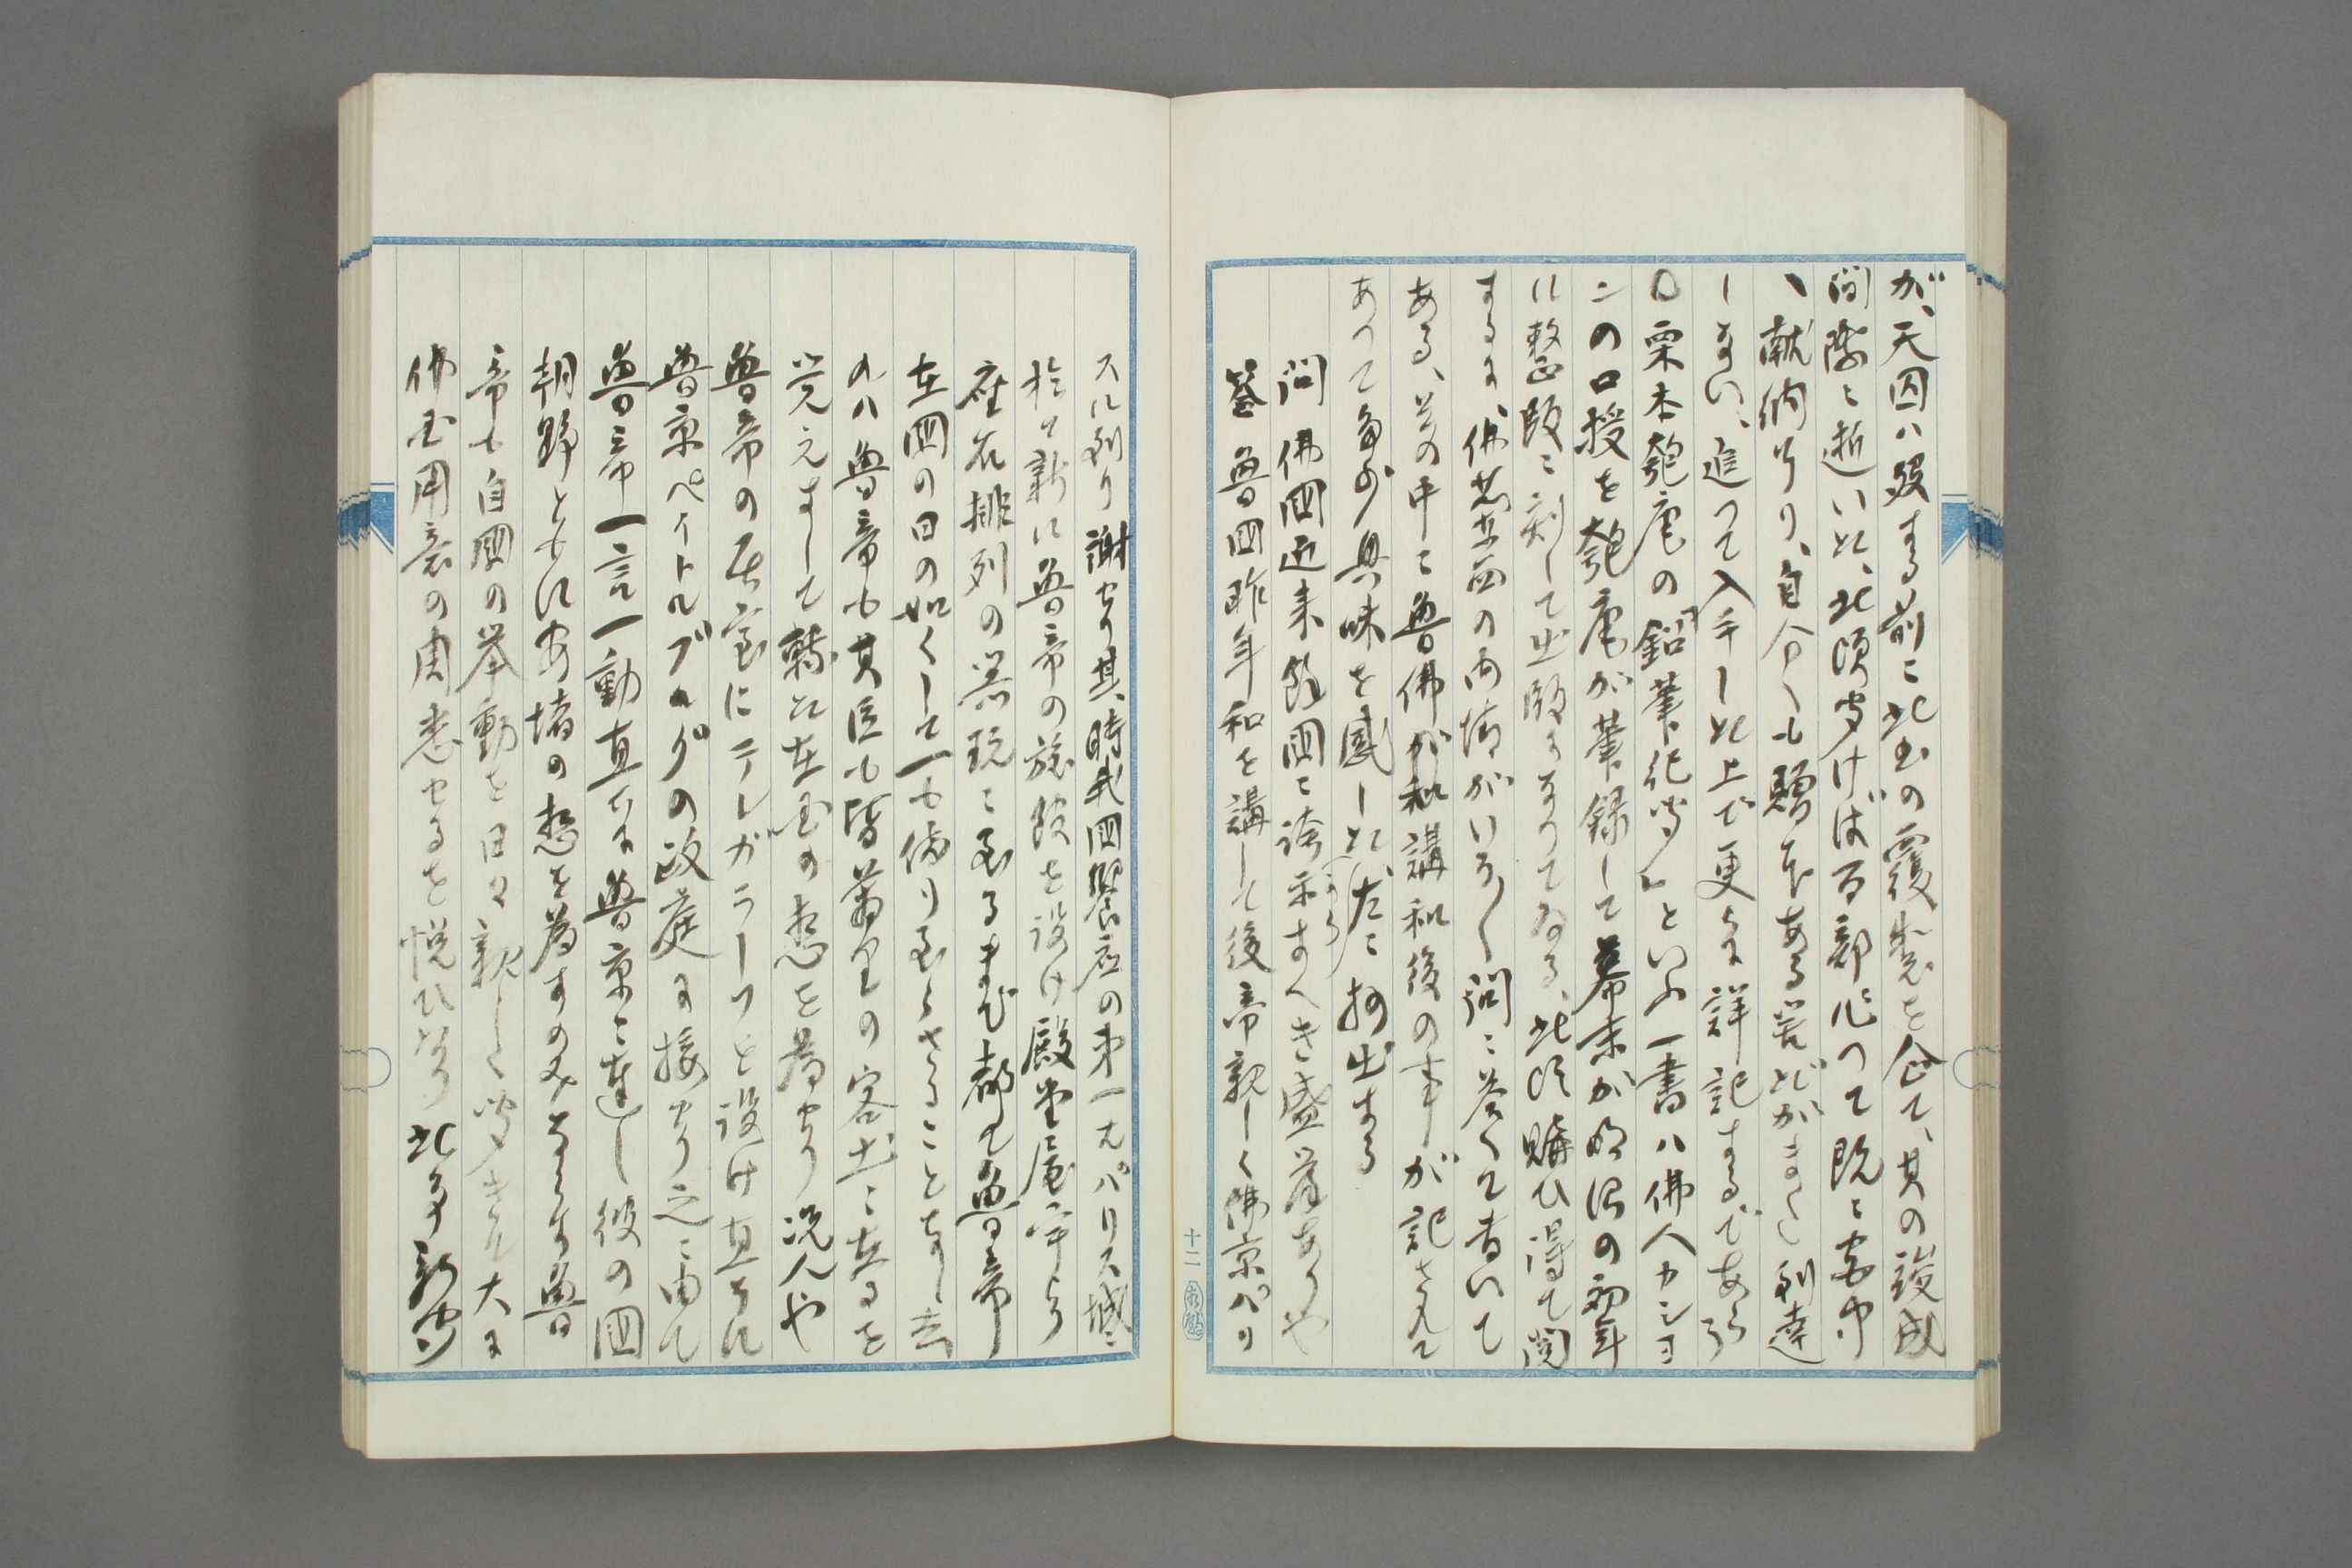 が、天囚ハ歿する前に此書の覆製を企て、其の竣成
間際に逝いた、此頃聞けば百部作つて既に宮中
へ献納し了り、自分へも贈本ある筈だがまだ到達
しない、追つて入手した上で更らに詳記するであらう
○栗本匏庵の『鉛筆紀聞』といふ一書ハ佛人カシヨ
ンの口授を匏庵が筆録して幕末か明治の初年
に整版に刻して出版になつてゐる、此頃購ひ得て閲
するに、佛蘭西の内情がいろ〳〵問に答へて書いて
ある、其の中に魯佛が和講和後の事が記されて
あつて多少興味を感じた、左に抄出する
問 佛國近来餘國に誇示すへき盛業ありや
答 魯国昨年和を講して後帝親しく佛京パリ
スに到り謝せり其時我国饗応の第一ハパリス城に
於て新に魯帝の旅館を設け殿堂庭宇より
座右排列の器玩に至るまで都て魯帝
在国の日の如くして一も備り至らさることなし去
れハ魯帝も其臣も皆萬里の客土に在るを
覚えすして転た在国の想を為せり況んや
魯帝の居室にテレガラーフを設け直ちに
魯京ペイトルブルグの政庭に接せり之に由て
魯帝一言一動直ちに魯京に達し彼の国
朝野ともに安堵の想を為すのみならす魯
帝も自國の挙動を日々親しく聞き得大に
佛国用意の周悉せるを悦ひたり此事新聞
十二